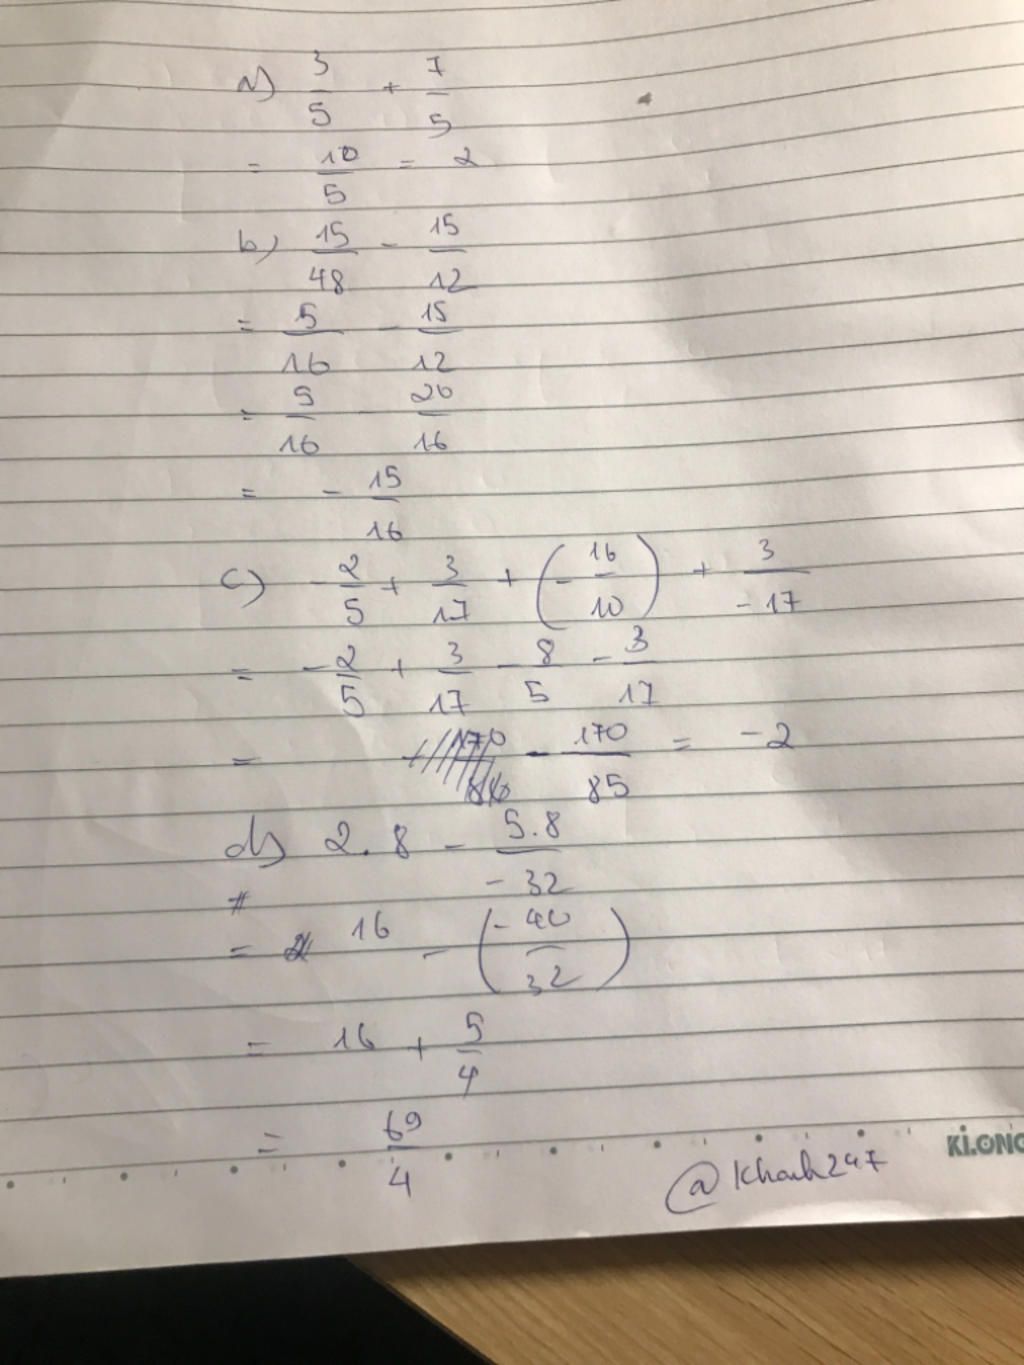 a) 3/5 + 7/5
= 10/5 = 2
b) 15/48 - 15/12
= 5/16 - 15/12
= 5/16 - 20/16
= - 15/16
c) - 2/5 + 3/17 + (- 16/10) + 3/-17
= - 2/5 + 3/17 - 8/5 - 3/17
= - 170/85 = -2
d) 2.8 - 5.8/-32
= 16 - (-40/32)
= 16 + 5/4
= 69/4
@Khanh247
KiLONG